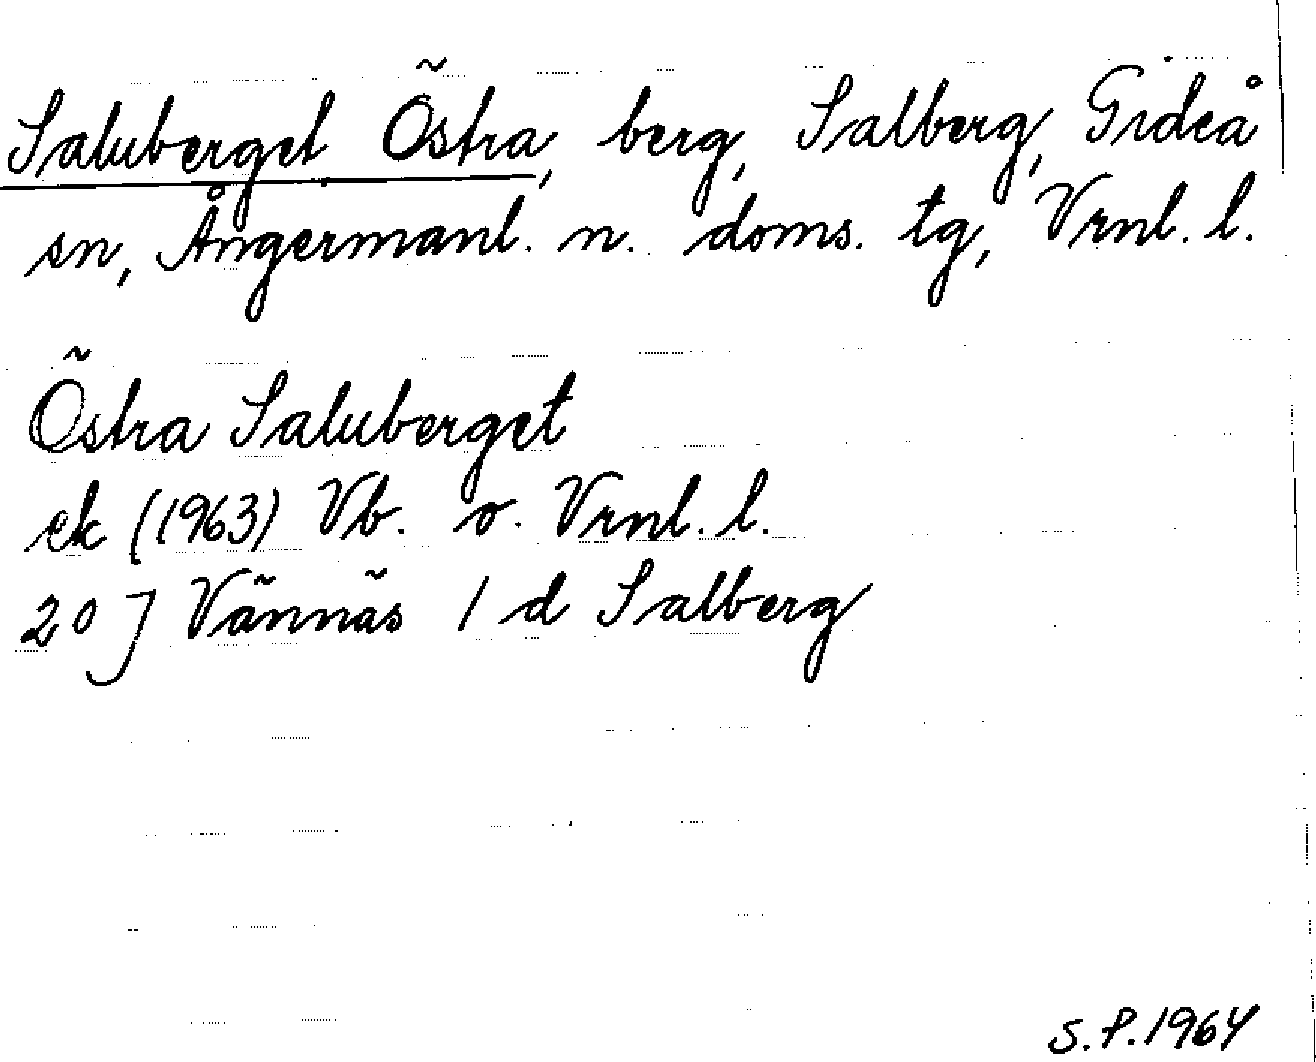 Saluberget Östra, berg, Salberg, Gideå
sn, Ångermanl. n. doms. tg, Vrnl. l.
Östra Saluberget
ek (1963) Vb. o. Vrnl. l.
20 J Vännäs 1 d Salberg
S.P.1964